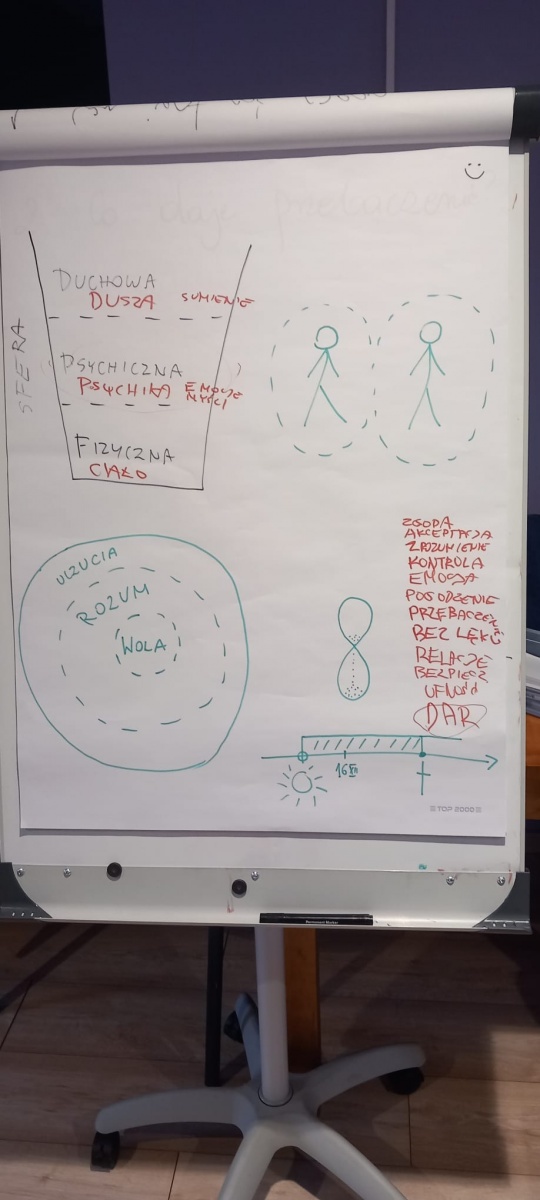 SFERA
DUCHOWA
DUSZA SUMIENIE
PSYCHICZNA
PSYCHIKA EMOCJE
MYŚLI
FIZYCZNA
CIAŁO
UCZUCIA
ROZUM
WOLA
ZGODA
AKCEPTACJA
ZROZUMIENIE
KONTROLA
EMOCJA
POGODZENIE
PRZEBACZENIE
BEZ LĘKU
RELACJE
BEZPIECZ
UFNOŚĆ
DAR
16 XII
TOP 2000
Permanent Marker